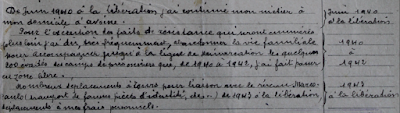 De Juin 1940 à la libération, j'ai continué mon métier à
mon domicile d'avoine.
Juin 1940
à la libération
Pour l'exécution des faits de résistance qui seront énumérés
plus loin j'ai dû, très fréquemment, abandonner la vie familiale
pour accompagner jusqu'à la ligne de démarcation les quelques
évadés des camps de prisonniers que, de 1940 à 1942, j'ai fait passer
en zone libre.
1940
à
1942
Nombreux déplacements à Tours pour liaison avec le réseau Marco-
(transport de fausses pièces d'identité, de 1943 à la libération
déplacements à mes frais personnels.
de 1943
à la libération